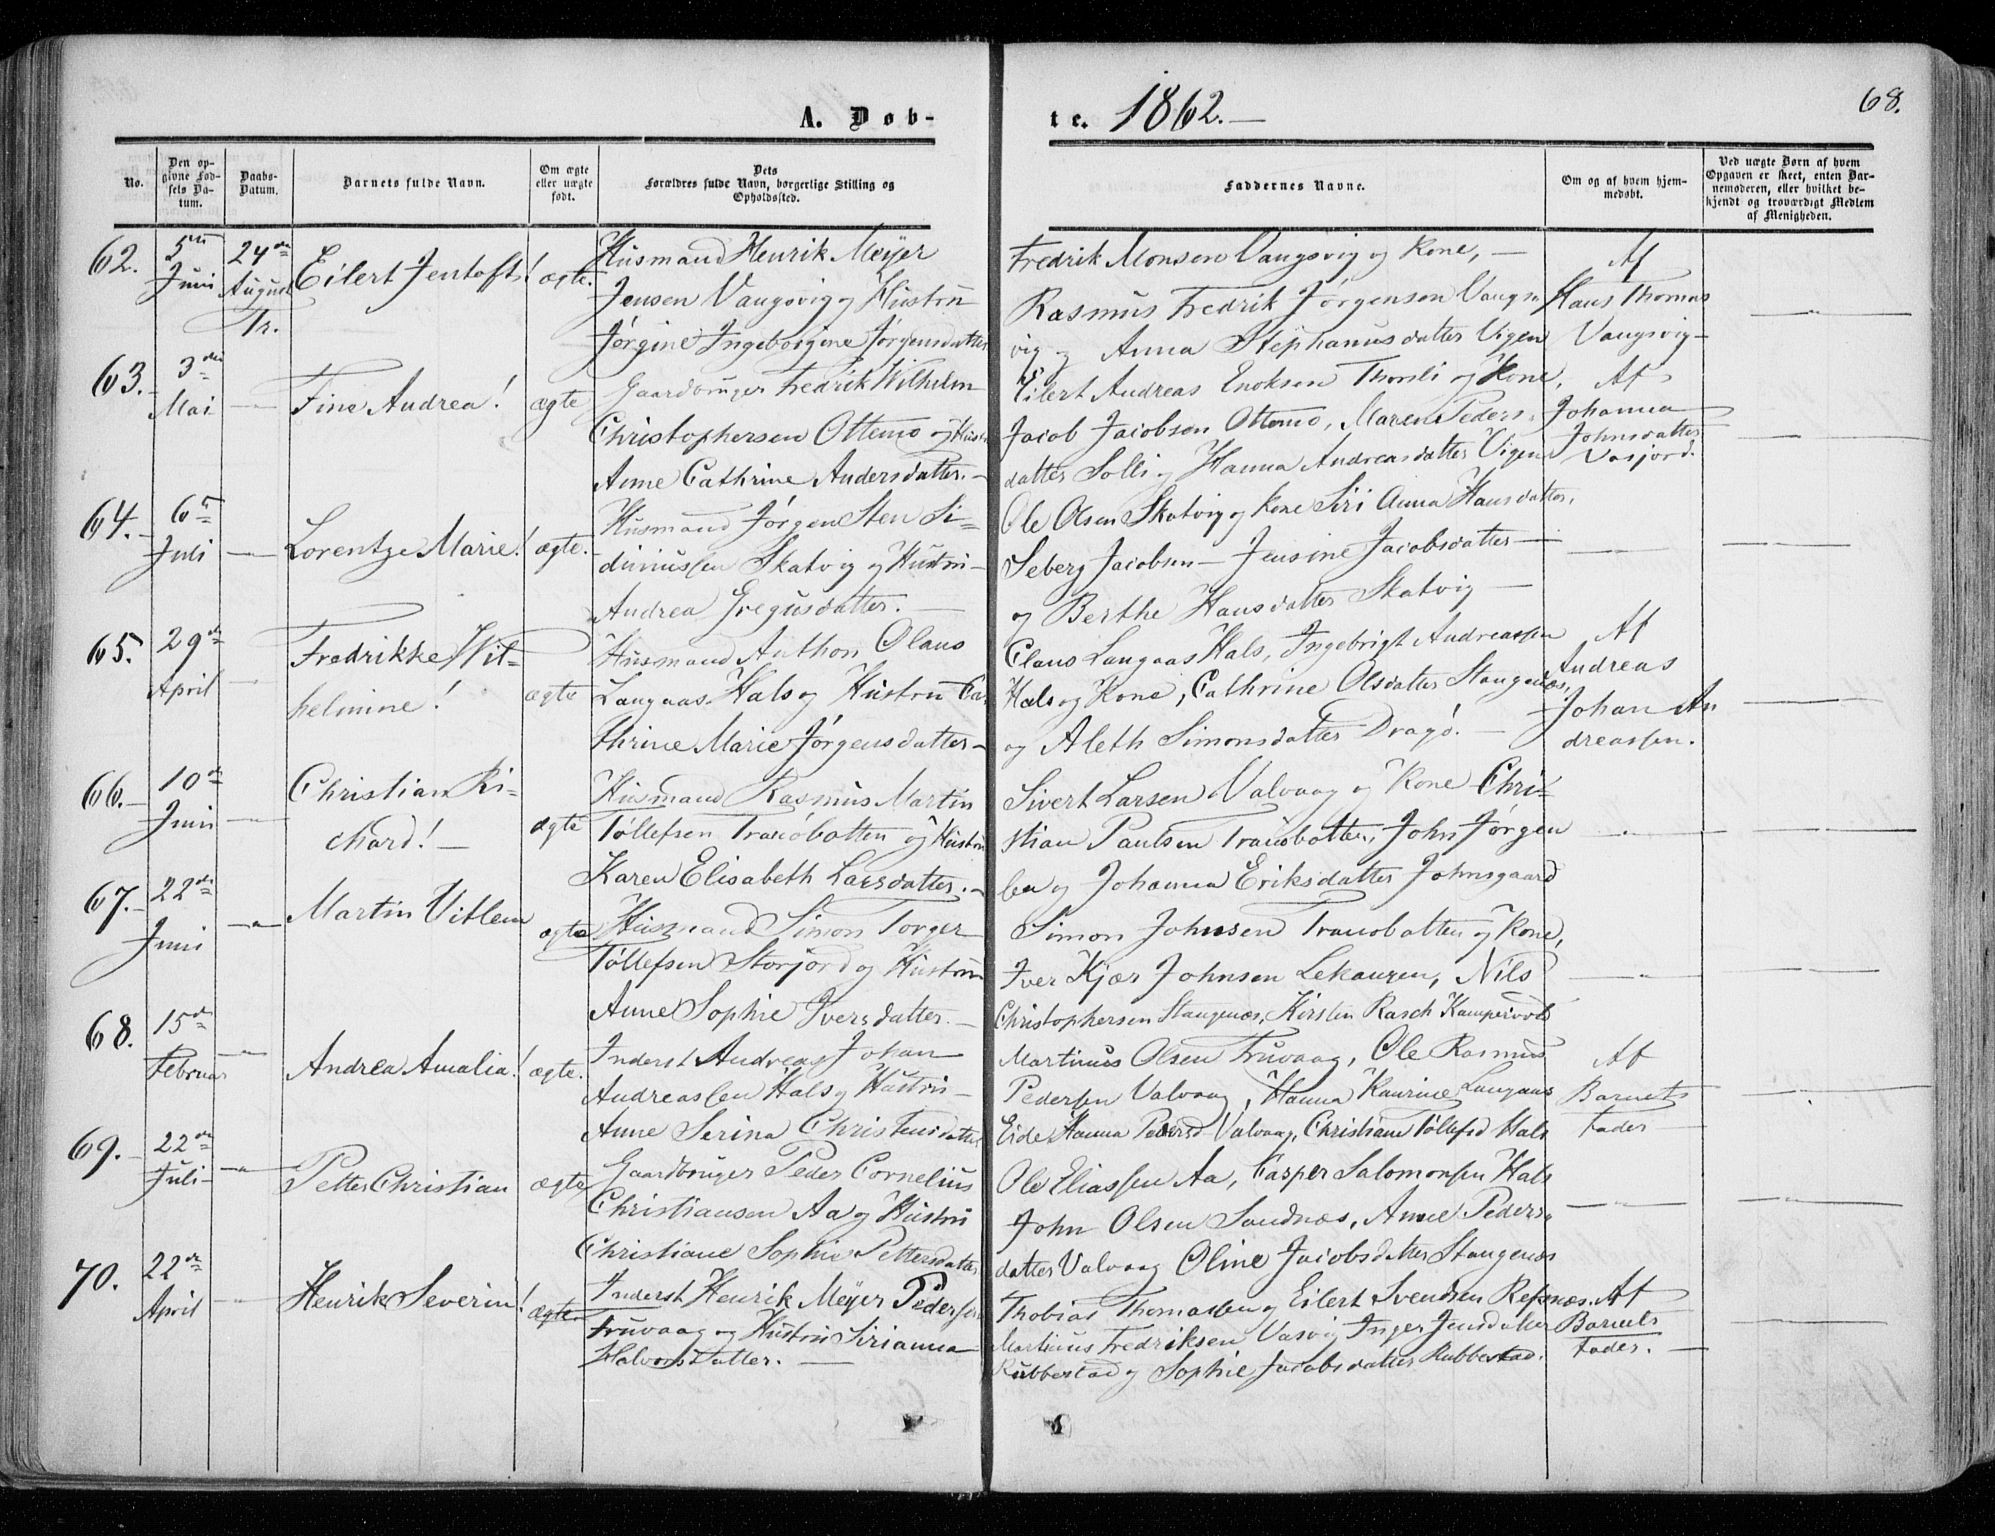 A. Døb-
te. 1862.-
68.
No.
Den op-
givne Fød-
sels Da-
tum.
Daabs-
Datum.
Barnets fulde Navn.
Om ægte
eller uægte
født.
Dets
Forældres fulde Navn, borgerlige Stilling og
Opholdssted.
Faddernes Navne.
Om og af hvem hjem-
medøbt.
Ved uægte Børn af hvem
Opgaven er skeet, enten Bar-
nemoderen, eller hvilket be-
kjendt og troværdigt Medlem
af Menigheden.
62.
5te
Juni
24de
August
Tr.
Eilert Jentoft!
ægte.
Husmand Henrik Meÿer
Jensen Vangsvig og Hustru
Jørgine Ingeborgine Jørgensdatter
Fredrik Monsen Vangsvig og Kone, -
Rasmus Fredrik Jørgensen Vangs-
vig og Anna Stephanusdatter Vigen
Af
Hans Thomas
Vangsvig-
63.-
3de
Mai
Fine Andrea!
ægte
Gaardbruger Fredrik Wilhelm
Christophersen Ottemo og Hustr
Anne Cathrine Andersdatter.-
Eilert Andreas Enoksen Thorsli og Kone,
Jacob Jacobsen Ottemo, Maren Peders-
datter Solli og Hanna Andreasdatter Vigen
Af
Johanna
Johnsdatter
Vasjord.
64.-
6te
Juli
Lorentze Marie!
ægte.
Husmand Jørgen Sten Si-
diniussen Skatvig og Hustru-
Andrea Gregusdatter.-
Ole Olsen Skatvig og Kone Siri Anna Hansdatter,
Seberg Jacobsen - Jensine Jacobsdatter-
og Berthe Hansdatter Skatvig-
65.
29de
April
Fredrikke Wil-
helmine!
ægte
Husmand Anthon Olaus
Langaas Hals og Hustru Ca-
thrine Marie Jørgensdatter-
Claus Langaas Hals, Ingebrigt Andreassen
Hals og Kone, Cathrine Olsdatter Stangenæs,
og Aleth Simonsdatter Dragø.-
Af
Andreas
Johan An
dreassen.
66.-
10de
Juni
Christian Ri-
chard!-
ægte
Husmand Rasmus Martin
Tøllefsen Tranøbotten og Hustru
Karen Elisabeth Larsdatter.-
Sivert Larsen Valvaag og Kone Chri-
stian Paulsen Tranøbotten, John Jørgen
sen og Johanna Eriksdatter Johnsgaard
67.-
22de
Juni
Martin Vitlem
ægte
Husmand Simon Torger
Tøllefsen Storjord og Hustru
Anne Sophie Iversdatter.-
Simon Johnsen Tranobotten og Kone,
Iver Kjær Johnsen Lekangen, Nils
Christophersen Stangenæs, Kirsten Rasch Kampevold
68.
15de
Februar
Andrea Amalia!
ægte.
Inderst Andreas Johan
Andreassen Hals og Hustru-
Anne Serina Christensdatter
Martinus Olsen Truvaag, Ole Rasmus
Pedersen Valvaag, Hanna Kaurine Langaas
Eide Hanna Pedersd Valvaag, Christiane Tøllefsd Hals
Af
Barnets
Fader
69.-
22de
Juli-
Petter Christian
ægte
Gaardbruger Peder Cornelius
Christiansen Aa og Hustru
Christiane Sophie Pettersdatter
Ole Eliassen Aa, Casper Salomonsen Hals
John Olsen Sandnæs, Anne Peders-
datter Valvaag Oline Jacobsdatter Stangenæs
70.
22de
April
Henrik Severin!
ægte
Inderst Henrik Meÿer Pedersen
Truvaag og Hustru Sirianna
Halvorsdatter.-
Thobias Thomassen og Eilert Svendsen Refsnæs.
Martinus Fredriksen Vasvig Inger Jensdatter
Rubbestad og Sophie Jacobsdatter Rubbestad.
Af
Barnets
Fader.-